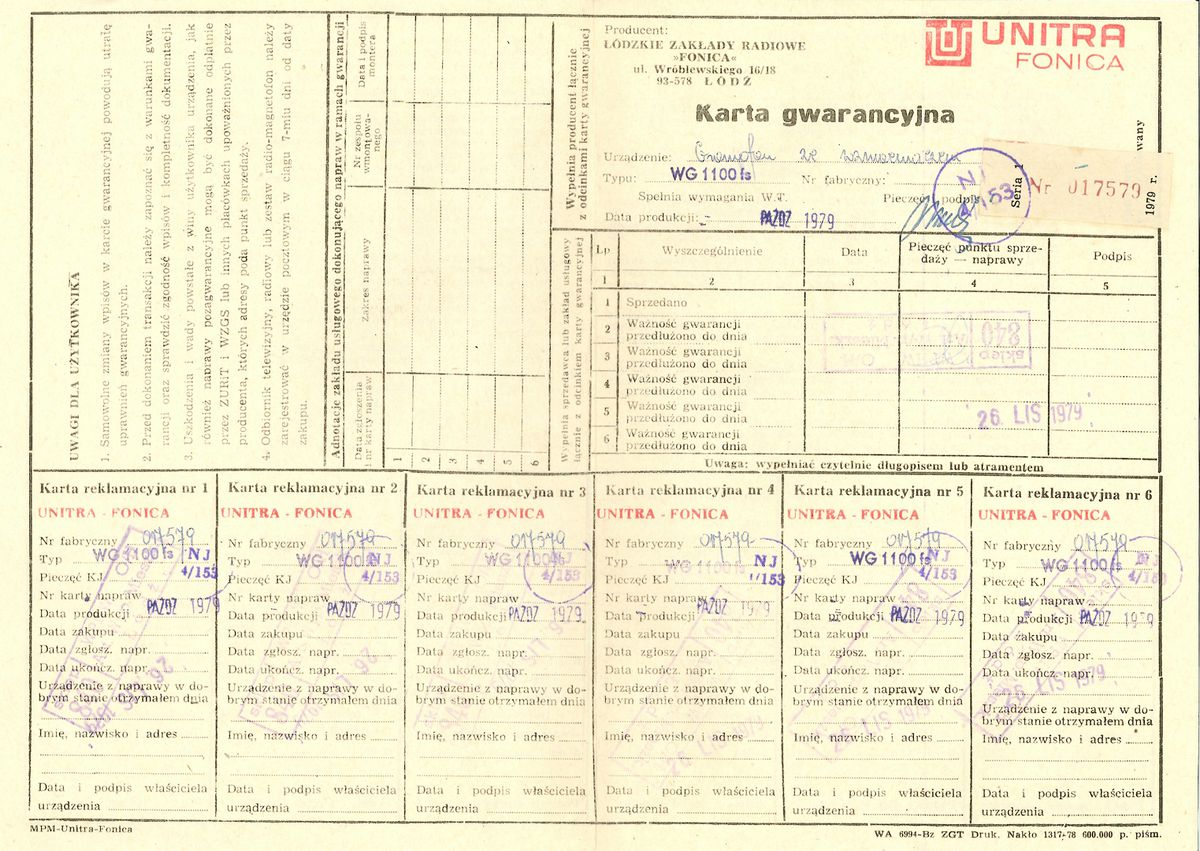 UWAGI DLA UŻYTKOWNIKA
1. Samowolne zmiany wpisów w karcie gwarancyjnej powodują utratę
uprawnień gwarancyjnych.
2. Przed dokonaniem transakcji należy zapoznać się z warunkami gwa-
rancji oraz sprawdzić zgodność wpisów i kompletność dokumentacji.
3. Uszkodzenia i wady powstałe z winy użytkownika urządzenia, jak
również naprawy pozagwarancyjne mogą być dokonane odpłatnie
przez ZURiT i WZGS lub innych placówkach upoważnionych przez
producenta, których adresy poda punkt sprzedaży.
4. Odbiornik telewizyjny, radiowy lub zestaw radio-magnetofon należy
zarejestrować w urzędzie pocztowym w ciągu 7-miu dni od daty
zakupu.
Adnotacje zakładu usługowego dokonującego napraw w ramach gwarancji
Data zgłoszenia
i nr karty napraw
Zakres naprawy
Nr zespołu
wmontowa-
nego
Data i podpis
montera
1
2
3
4
5
6
Wypełnia producent łącznie
z odcinkami karty gwarancyjnej
Producent:
ŁÓDZKIE ZAKŁADY RADIOWE
»FONICA«
ul. Wróblewskiego 16/18
93-578 ŁÓDŹ
UNITRA
FONICA
Karta gwarancyjna
Urządzenie: Gramofon ze wzmacniaczem
Typu: WG 1100 fs Nr fabryczny:
Seria 1 Nr 017579
1979 r.
wany
Spełnia wymagania W.T. Pieczęć i podpis
NJ
4/153
Data produkcji: PAŹDZ 1979
Wypełnia sprzedawca lub zakład usługowy
łącznie z odcinkiem karty gwarancyjnej
Lp Wyszczególnienie Data Pieczęć punktu sprze-
daży — naprawy Podpis
1 2 3 4 5
1 Sprzedano
2 Ważność gwarancji
przedłużono do dnia
3 Ważność gwarancji
przedłużono do dnia
4 Ważność gwarancji
przedłużono do dnia
5 Ważność gwarancji
przedłużono do dnia
6 Ważność gwarancji
przedłużono do dnia
sklep
840
26. LIS 1979
Uwaga: wypełniać czytelnie długopisem lub atramentem
Karta reklamacyjna nr 1
UNITRA - FONICA
Nr fabryczny 017579
Typ WG 1100 fs NJ
Pieczęć KJ 4/153
Nr karty napraw
Data produkcji PAŹDZ 1979
Data zakupu
Data zgłosz. napr.
Data ukończ. napr.
Urządzenie z naprawy w do-
brym stanie otrzymałem dnia
Imię, nazwisko i adres
Data i podpis właściciela
urządzenia
Karta reklamacyjna nr 2
UNITRA - FONICA
Nr fabryczny 017579
Typ WG 1100 fs NJ
Pieczęć KJ 4/153
Nr karty napraw
Data produkcji PAŹDZ 1979
Data zakupu
Data zgłosz. napr.
Data ukończ. napr.
Urządzenie z naprawy w do-
brym stanie otrzymałem dnia
Imię, nazwisko i adres
Data i podpis właściciela
urządzenia
Karta reklamacyjna nr 3
UNITRA - FONICA
Nr fabryczny 017579
Typ WG 1100 fs NJ
Pieczęć KJ 4/153
Nr karty napraw
Data produkcji PAŹDZ 1979
Data zakupu
Data zgłosz. napr.
Data ukończ. napr.
Urządzenie z naprawy w do-
brym stanie otrzymałem dnia
Imię, nazwisko i adres
Data i podpis właściciela
urządzenia
Karta reklamacyjna nr 4
UNITRA - FONICA
Nr fabryczny 017579
Typ WG 1100 fs NJ
Pieczęć KJ /153
Nr karty napraw
Data produkcji PAŹDZ 1979
Data zakupu
Data zgłosz. napr.
Data ukończ. napr.
Urządzenie z naprawy w do-
brym stanie otrzymałem dnia
Imię, nazwisko i adres
26. LIS 1979
Data i podpis właściciela
urządzenia
Karta reklamacyjna nr 5
UNITRA - FONICA
Nr fabryczny 017579
Typ WG 1100 fs NJ
Pieczęć KJ 4/153
Nr karty napraw
Data produkcji PAŹDZ 1979
Data zakupu
Data zgłosz. napr.
Data ukończ. napr.
Urządzenie z naprawy w do-
brym stanie otrzymałem dnia
26. LIS 1979
Imię, nazwisko i adres
Data i podpis właściciela
urządzenia
Karta reklamacyjna nr 6
UNITRA - FONICA
Nr fabryczny 017579
Typ WG 1100 fs NJ
Pieczęć KJ 4/153
Nr karty napraw
Data produkcji PAŹDZ 1979
Data zakupu
Data zgłosz. napr.
Data ukończ. napr.
26. LIS 1979
Urządzenie z naprawy w do-
brym stanie otrzymałem dnia
Imię, nazwisko i adres
Data i podpis właściciela
urządzenia
MPM-Unitra-Fonica
WA 6994-Bz ZGT Druk. Nakło 1317-78 600.000 p. piśm.